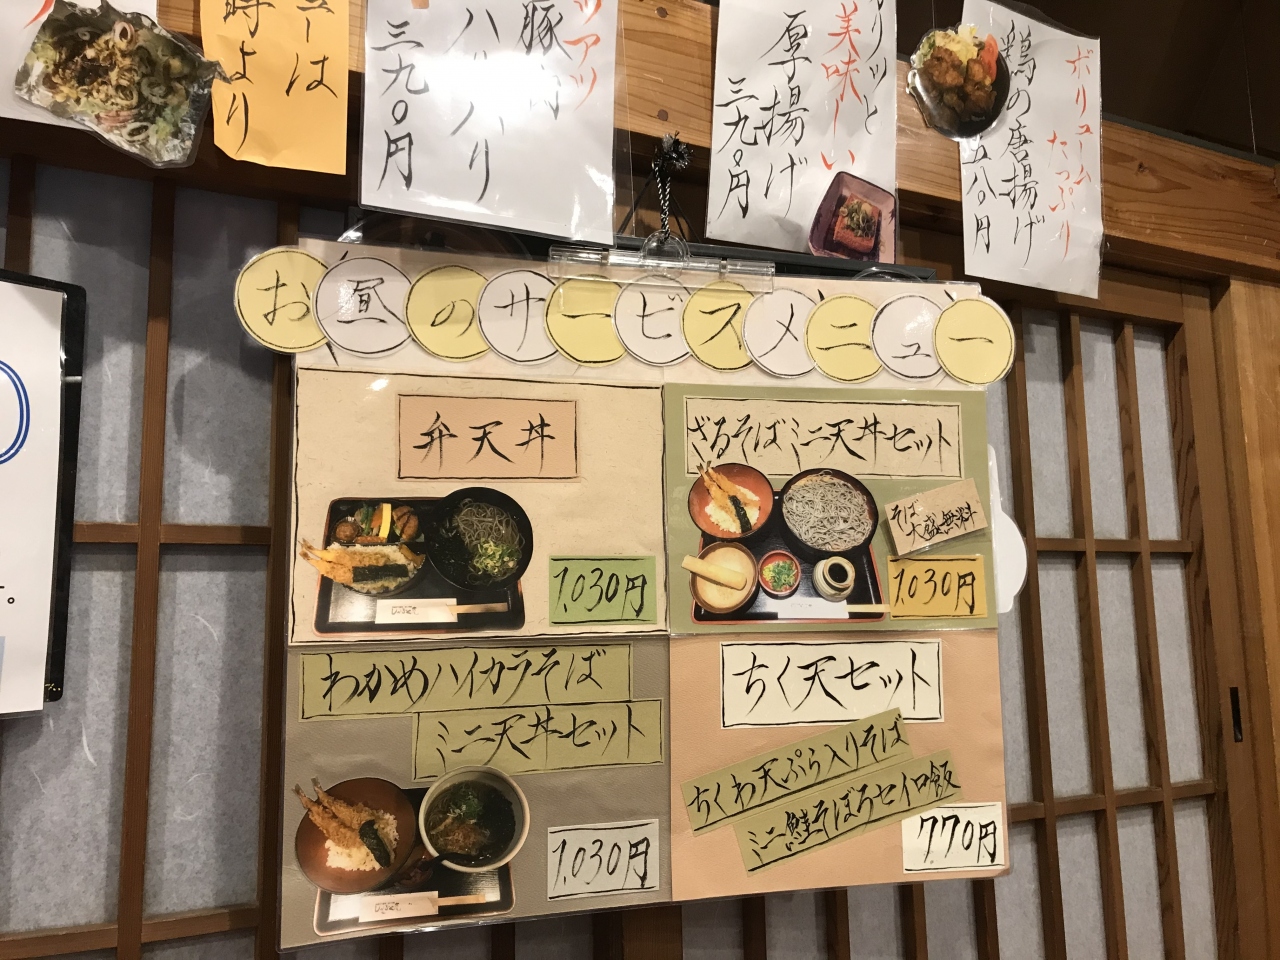 ューは
時より
アツアツ
豚肉
ハリハリ
三九〇円
カリッと
美味しい
厚揚げ
三九〇円
ボリューム
たっぷり
鶏の唐揚げ
五八〇円
お昼のサービスメニュー
弁天丼
1,030円
ざるそばミニ天丼セット
そば
大盛無料
1,030円
わかめハイカラそば
ミニ天丼セット
1,030円
ちく天セット
ちくわ天ぷら入りそば
ミニ鮭そぼろセイロ飯
770円